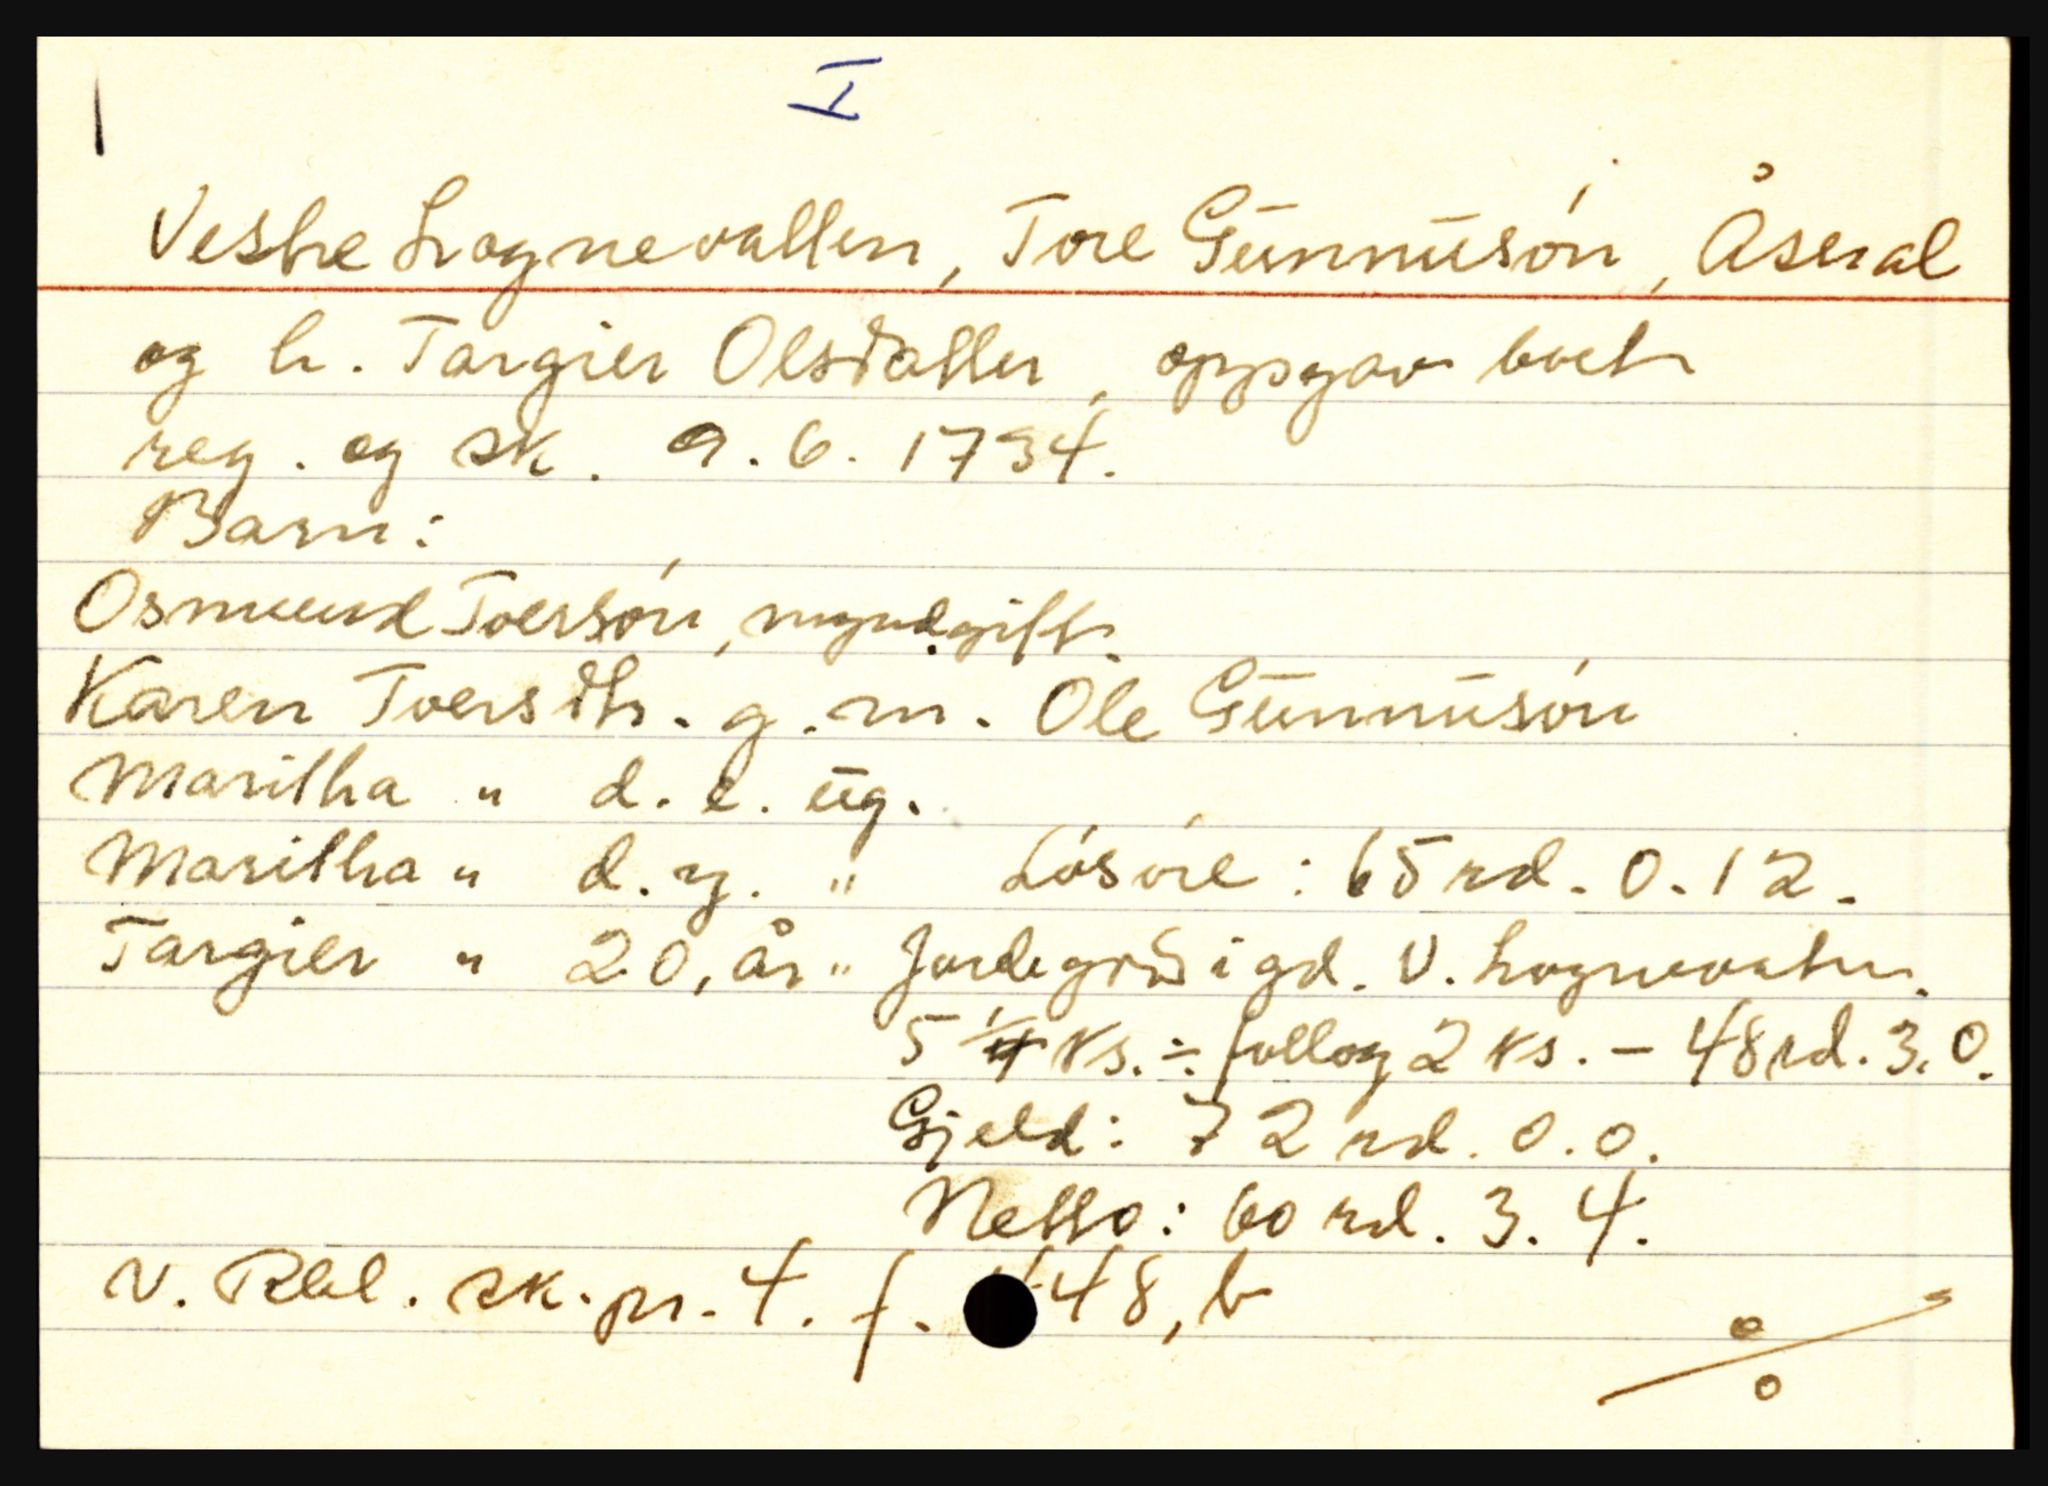 I
Vestre Lognevatten, Tore Gunnusón, Åseral
og h. Targier Olsdatter, oppgav boet
reg. og sk. 9.6. 1734.
Barn:
Osmund Toersón, myndgift.
Karen Toersdtr. g. m. Ole Gunnusón
Maritha " d. e. ug.
Maritha " d. y. " Lósöre: 65 rd. 0. 12.
Targier " 20, år " Jordegods i gd. V. Lognevatn.
5 1/4 ks. ÷ follog 2 ks. - 48 rd. 3. 0.
Gjeld: 72 rd. 0. 0.
Netto: 60 rd. 3. 4.
V. Rbl. sk. pr. 4. f. 48, b